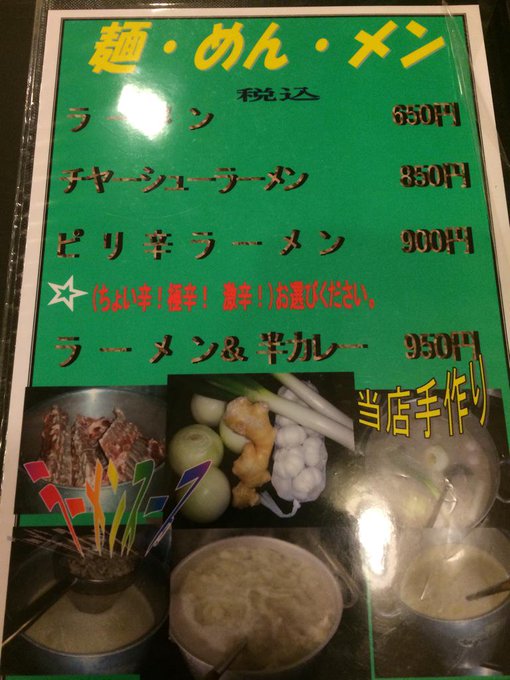 麺・めん・メン
税込
ラーメン 650円
チヤーシューラーメン 850円
ピリ辛ラーメン 900円
☆(ちょい辛!極辛! 激辛!)お選びください。
ラーメン&半カレー 950円
当店手作り
ラーメンスープ